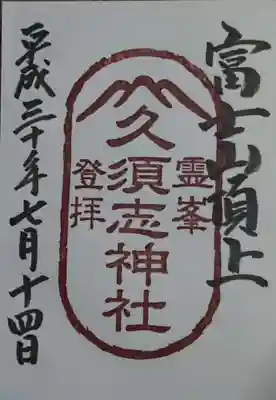 富士山頂上
霊峯
久須志神社
登拝
平成三十年七月十四日